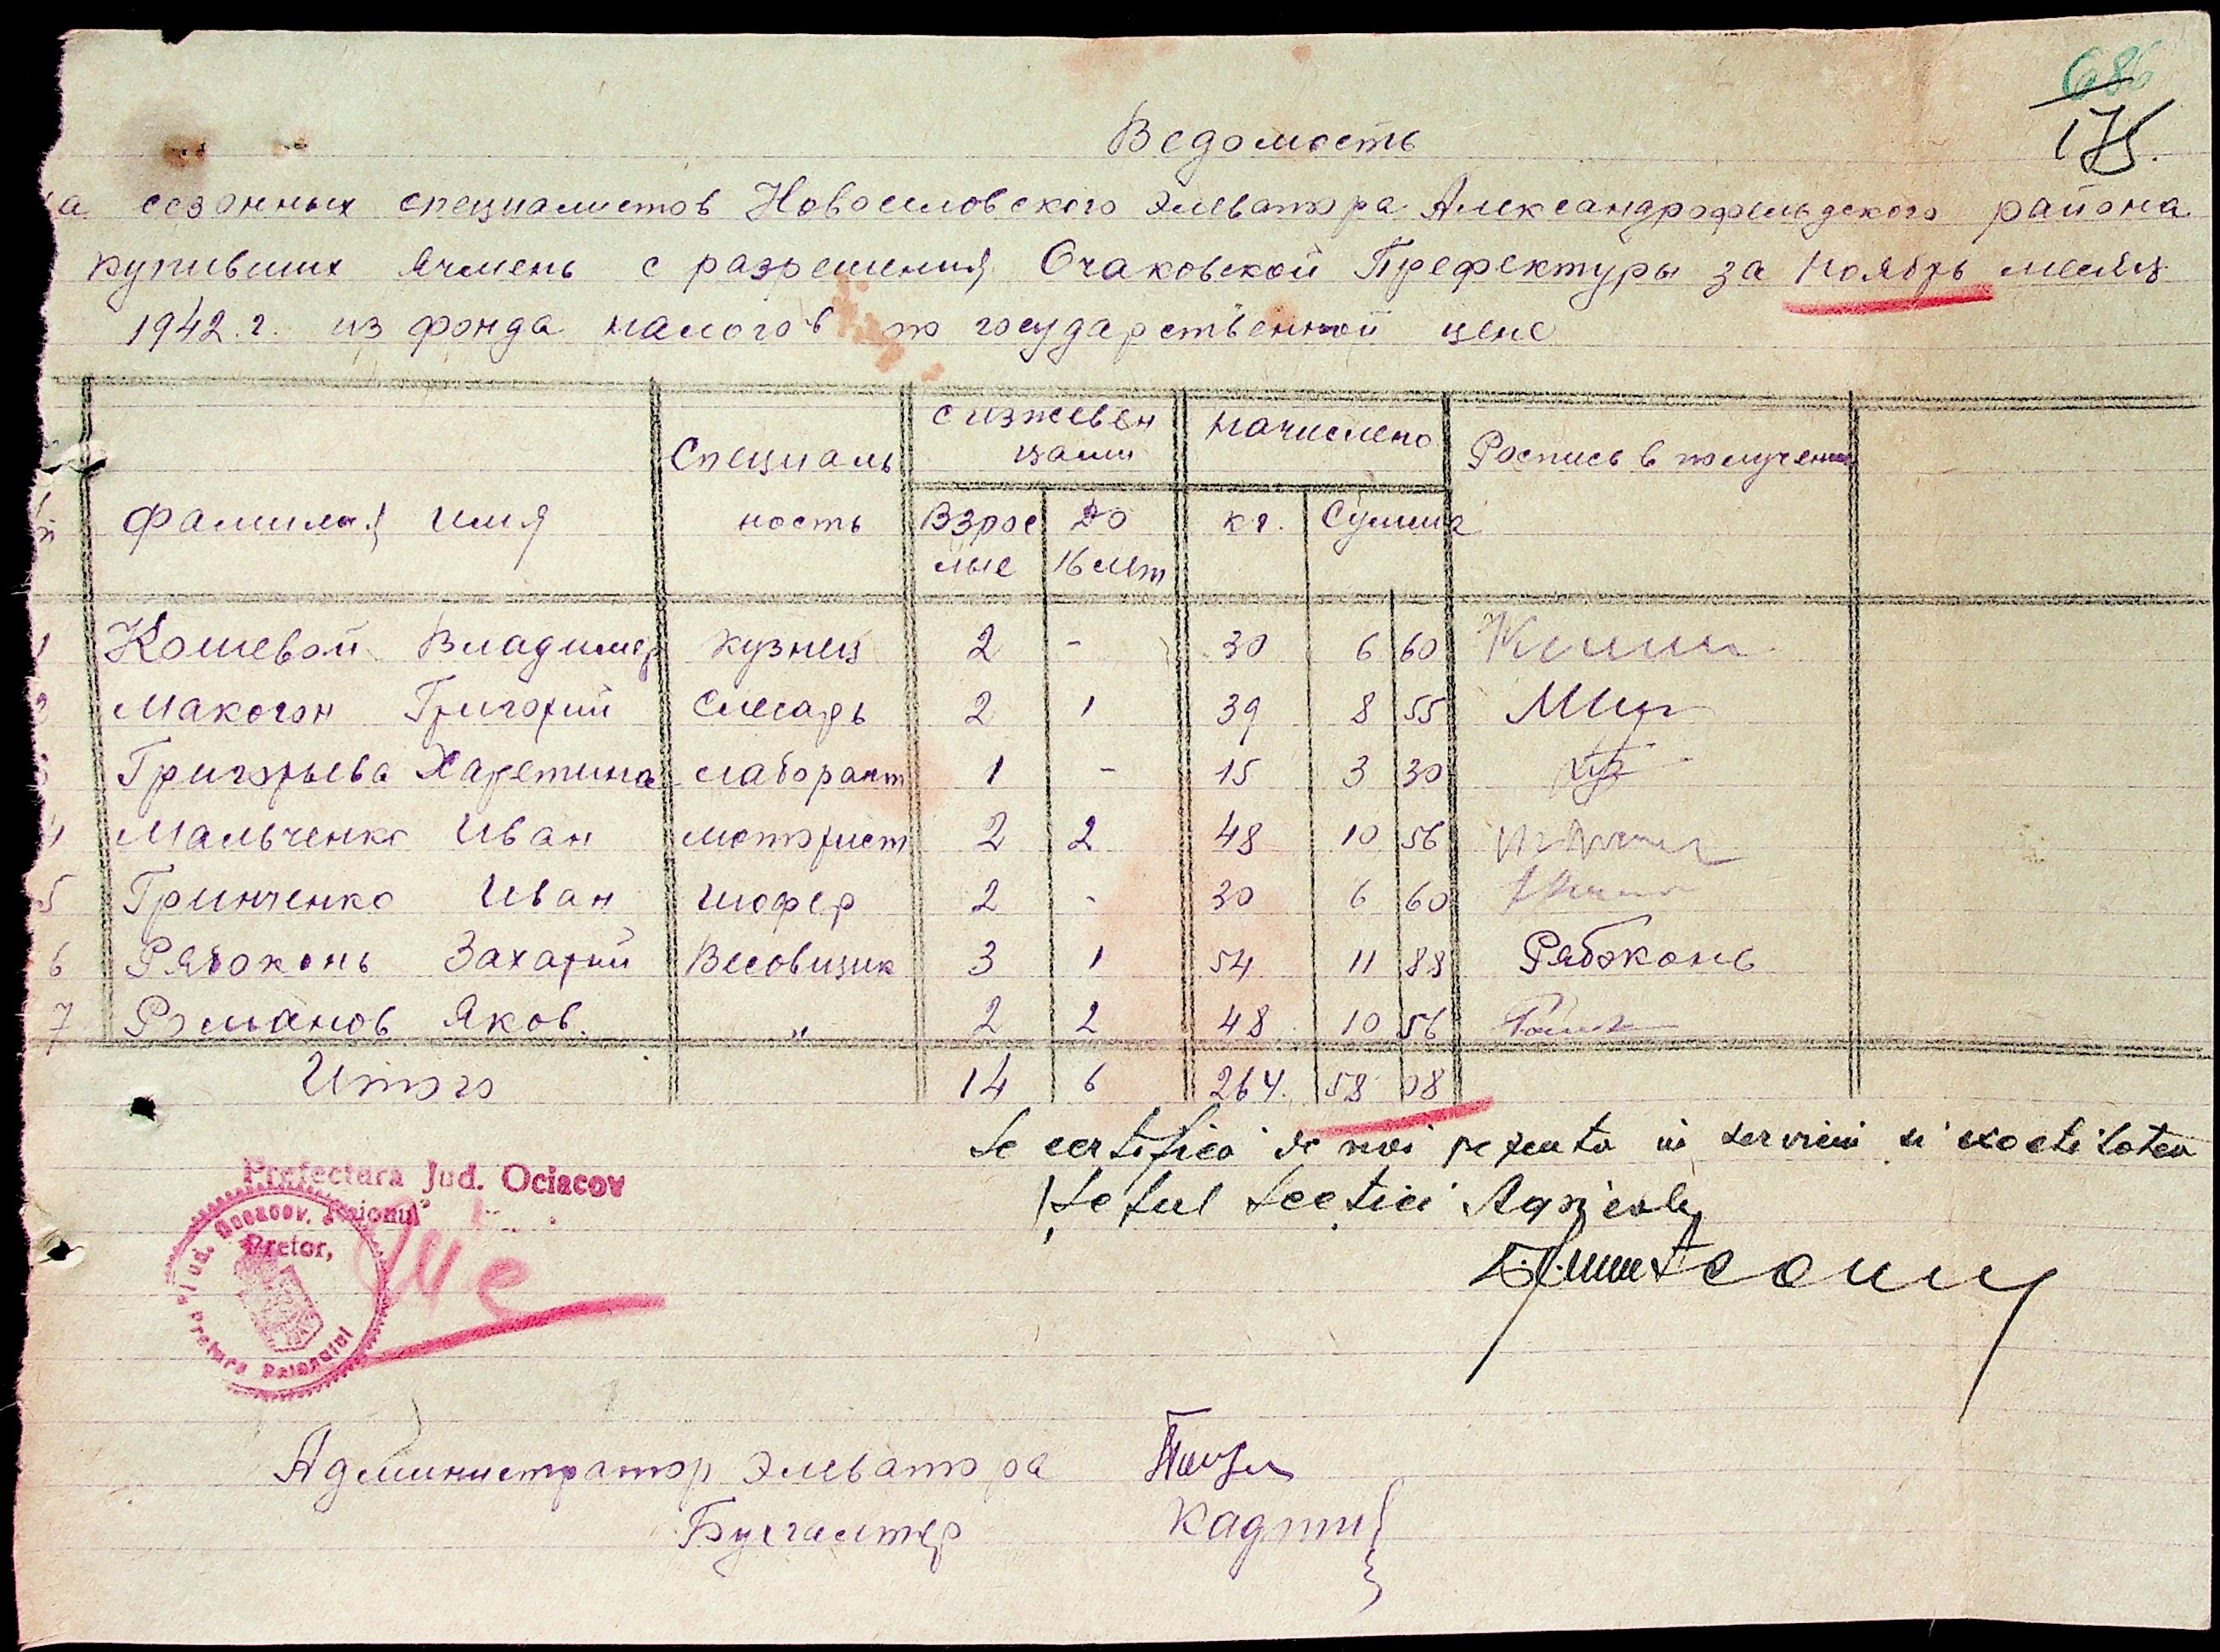 686
175.
Ведомость
на сезонных специалистов Новоселовского элеватора Александрофельдского района
купивших ячмень с разрешения Очаковской Префектуры за ноябрь месяц
1942.г. из фонда налогов по государственной цене
Фамилия Имя Специаль ность с изжевен цами начислено Роспись в получении
Взрос лые до 16 лет кг. Сумма
1 Кошевой Владимер кузнец 2 - 30 6 60
2 Макогон Григорий слесарь 2 1 39 8 55
3 Григорьева Харетина лаборант 1 - 15 3 30
4 Мальченко Иван моторист 2 2 48 10 56
5 Гринченко Иван шофер 2 - 30 6 60
6 Рябоконь Захарий Весовщик 3 1 54 11 88 Рябоконь
7 Романов Яков. " 2 2 48 10 56
Итого 14 6 264. 58 08
Se certifică de noi prezenta în serviciu și exactitatea
Șeful Secției Agricole
Prefectura Jud. Ociacov
Raionul
Pretor,
Jud. Oceacov. Pretura Raionului
Администратор элеватора
Бухгалтер